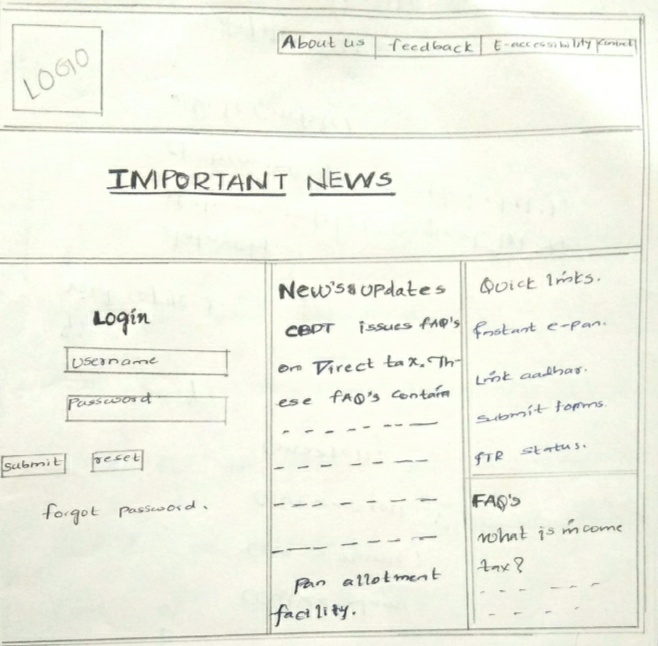 LOGO
About us feedback E-accessibility Contact
IMPORTANT NEWS
Login
Username
Password
submit reset
forgot password.
New's & updates
CBDT issues FAQ's
on Direct tax. Th-
ese FAQ's contain
Pan allotment
facility.
Quick links.
Instant e-pan.
Link aadhar.
submit forms.
ITR status.
FAQ's
What is income
tax?